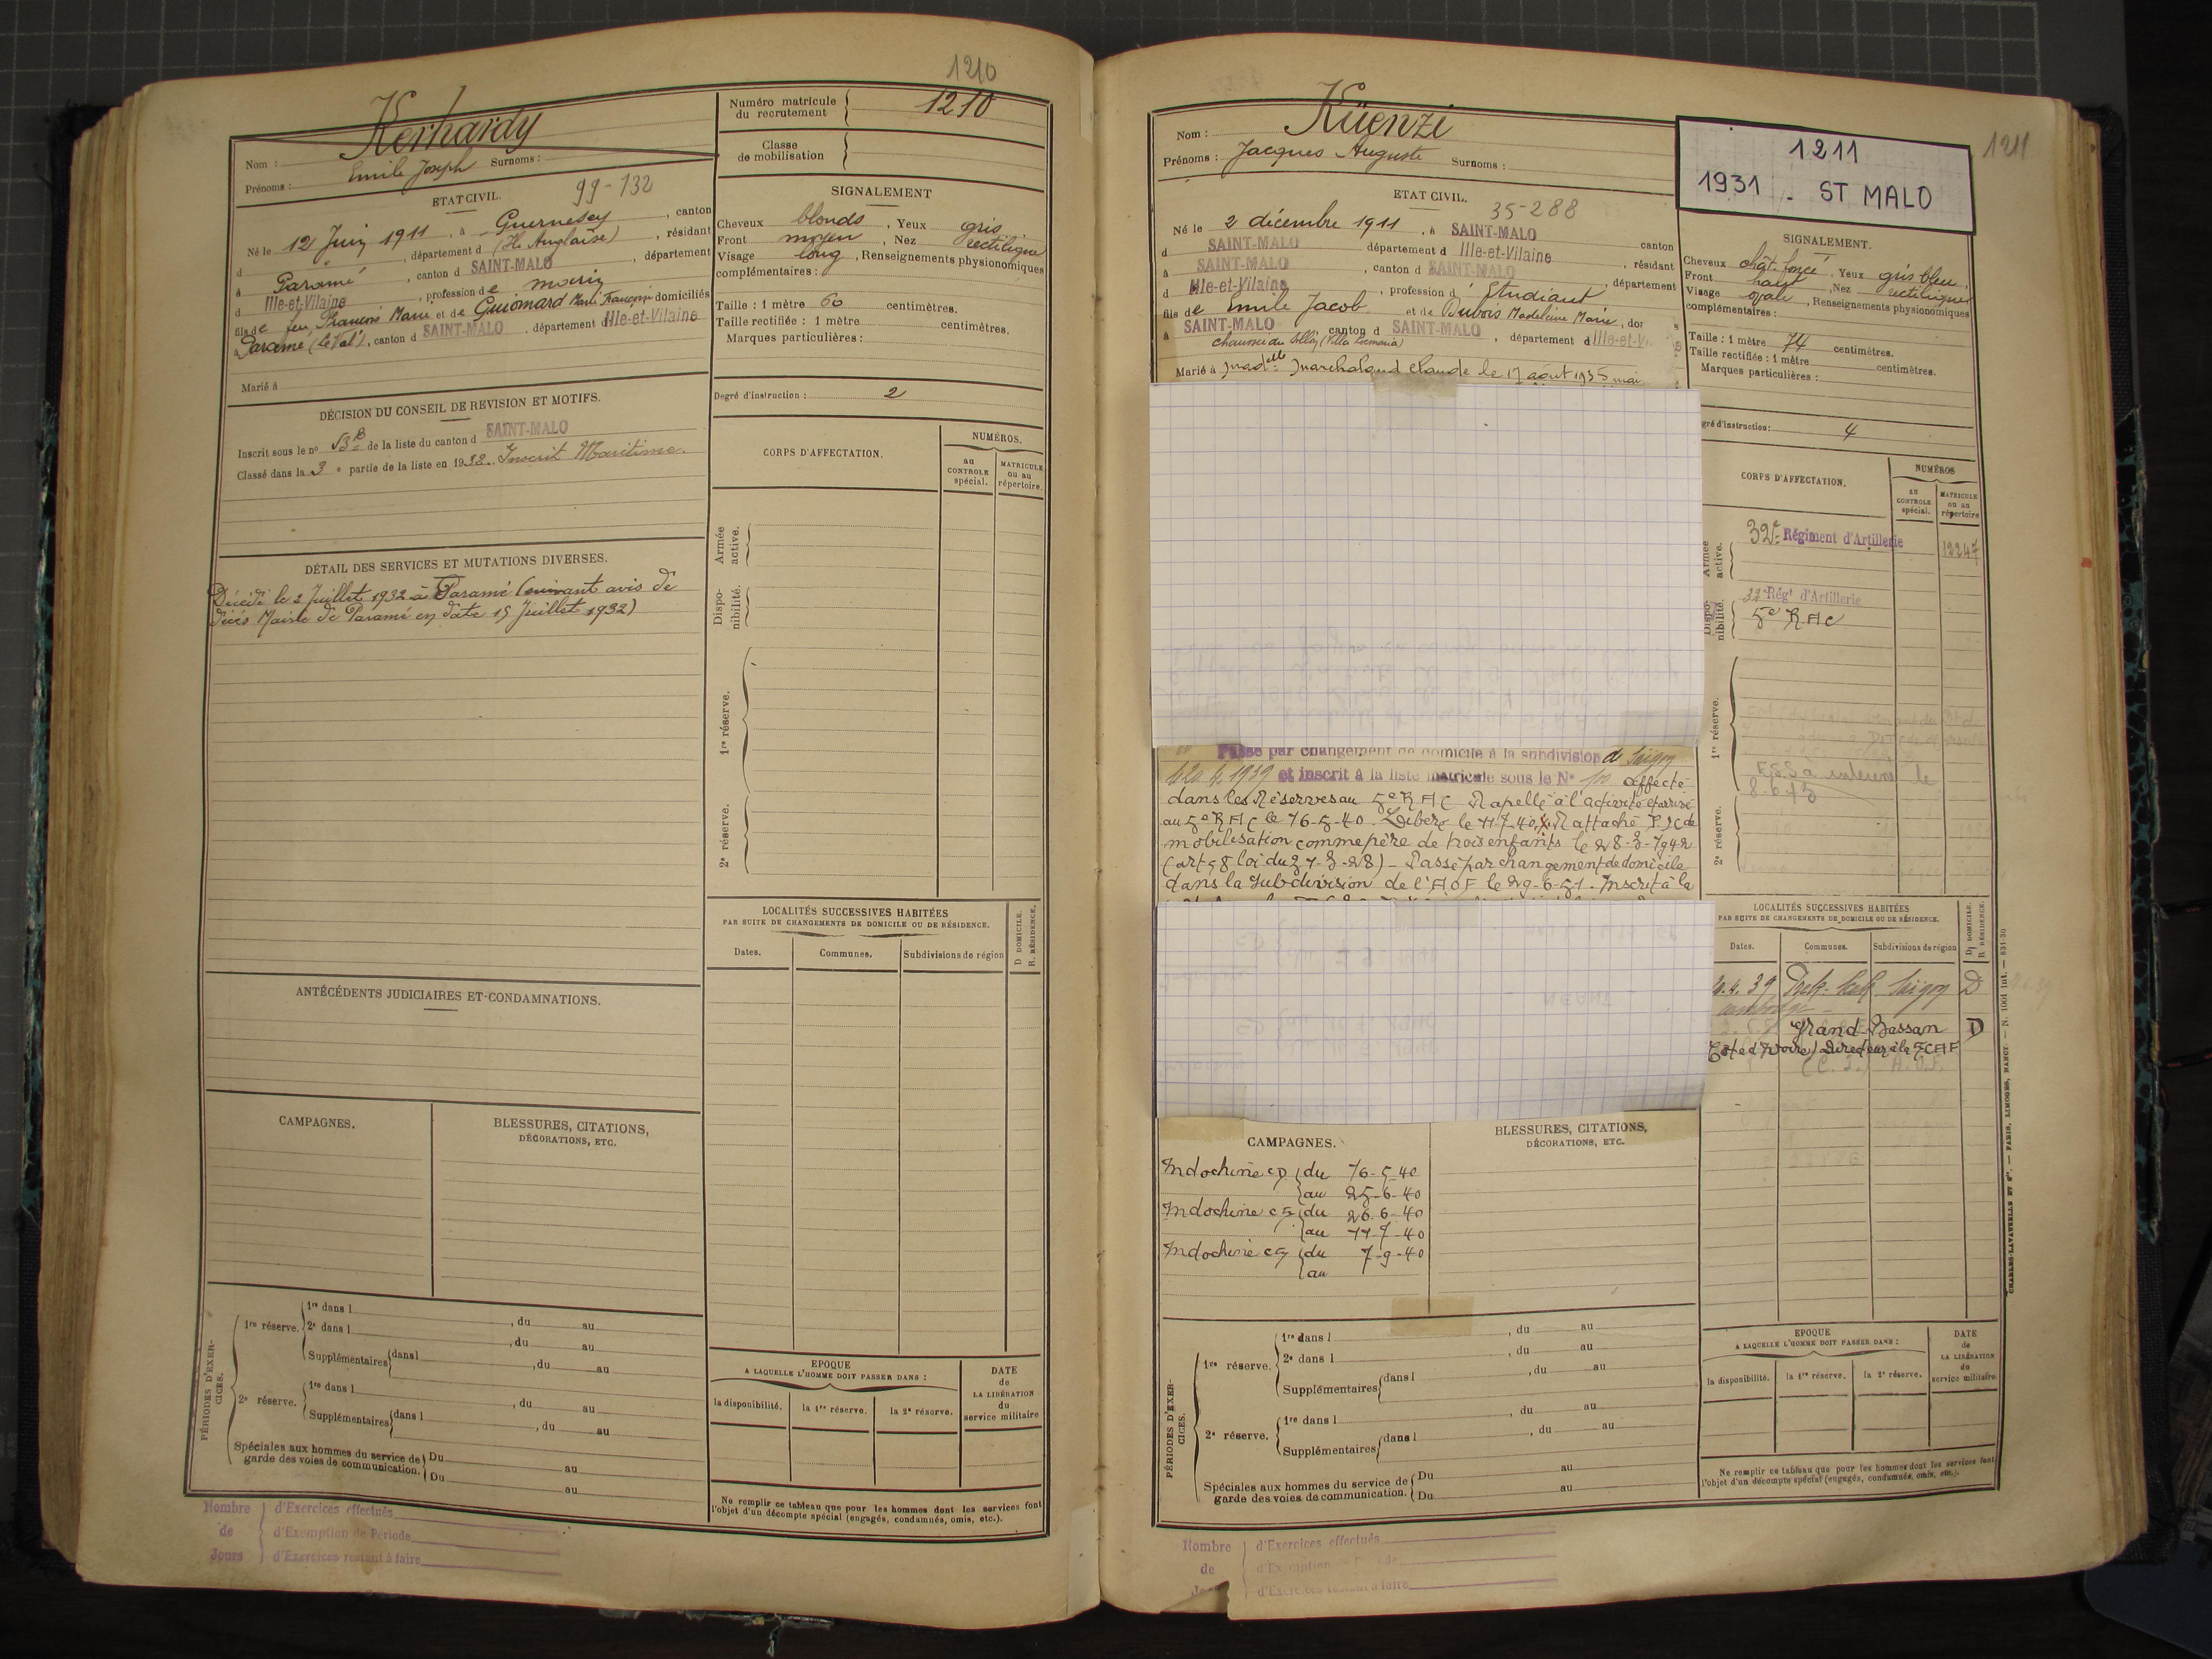 1210
Kerhardy
Nom :
Prénoms : Emile Joseph Surnoms :
ETAT CIVIL. 99-132
Né le 12 Juin 1911, à Guernesey, canton
d , département d (Ile Anglaise), résidant
à Paramé, canton d SAINT-MALO, département
d Ille-et-Vilaine, profession de marin
fils de feu François Marie et de Guiomard Marie Françoise domiciliés
à Paramé (le Val), canton d SAINT-MALO, département d Ille-et-Vilaine
Marié à
DÉCISION DU CONSEIL DE REVISION ET MOTIFS.
Inscrit sous le nº 53 B de la liste du canton d SAINT-MALO
Classé dans la 3e partie de la liste en 1932. Inscrit Maritime.
DÉTAIL DES SERVICES ET MUTATIONS DIVERSES.
Décédé le 2 Juillet 1932 à Paramé (suivant avis de
décès Mairie de Paramé en date 15 Juillet 1932)
ANTÉCÉDENTS JUDICIAIRES ET CONDAMNATIONS.
CAMPAGNES.
BLESSURES, CITATIONS,
DÉCORATIONS, ETC.
PÉRIODES D'EXER-
CICES.
1re réserve.
1re dans l , du au
2e dans l , du au
Supplémentaires dans l , du au
2e réserve.
1re dans l , du au
Supplémentaires dans l , du au
Spéciales aux hommes du service de
garde des voies de communication.
Du au
Du au
Nombre
de
Jours
d'Exercices effectués
d'Exemption de Période
d'Exercices restant à faire
Numéro matricule
du recrutement
1210
Classe
de mobilisation
SIGNALEMENT
Cheveux blonds, Yeux gris
Front moyen, Nez rectiligne
Visage long, Renseignements physionomiques
complémentaires :
Taille : 1 mètre 60 centimètres.
Taille rectifiée : 1 mètre centimètres.
Marques particulières :
Degré d'instruction : 2
CORPS D'AFFECTATION.
NUMÉROS.
au
CONTROLE
spécial.
MATRICULE
ou au
répertoire.
Armée
active.
Dispo-
nibilité.
1re réserve.
2e réserve.
LOCALITÉS SUCCESSIVES HABITÉES
PAR SUITE DE CHANGEMENTS DE DOMICILE OU DE RÉSIDENCE.
Dates. Communes. Subdivisions de région
D DOMICILE.
R. RÉSIDENCE.
EPOQUE
A LAQUELLE L'HOMME DOIT PASSER DANS :
la disponibilité. la 1re réserve. la 2e réserve.
DATE
de
LA LIBÉRATION
du
service militaire
Ne remplir ce tableau que pour les hommes dont les services font
l'objet d'un décompte spécial (engagés, condamnés, omis, etc.).
1211
Küenzi
Nom :
Prénoms : Jacques Auguste Surnoms :
1211
1931 - ST MALO
ETAT CIVIL. 35-288
Né le 2 décembre 1911, à SAINT-MALO canton
d SAINT-MALO département d Ille-et-Vilaine, résidant
à SAINT-MALO, canton d SAINT-MALO, département
d Ille-et-Vilaine, profession d'Etudiant
fils de Emile Jacob et de Dubois Madeleine Marie, dom
à SAINT-MALO canton d SAINT-MALO, département d Ille-et-V
chaussée du Sillon (Villa )
Marié à Madelle Marchaland Claude le 17 août 1935
Passé par changement de domicile à la subdivision d Saigon
le 20.4.1939 et inscrit à la liste matricule sous le Nº affecté
dans les Réserves au 5e RAC Rappelé à l'activité et arrivé
au 5e RAC le 16-5-40. Libéré le 11-7-40. Rattaché
mobilisation comme père de trois enfants le 28-3-1942
(art 58 loi du 31-3-28) - Passé par changement de domicile
dans la subdivision de l'AOF le 29-6-51. Inscrit à la
CAMPAGNES.
Indochine du 16-5-40
au 25-6-40
Indochine du 26-6-40
au 11-7-40
Indochine du 7-9-40
au
BLESSURES, CITATIONS,
DÉCORATIONS, ETC.
PÉRIODES D'EXER-
CICES.
1re réserve.
1re dans l , du au
2e dans l , du au
Supplémentaires dans l , du au
2e réserve.
1re dans l , du au
Supplémentaires dans l , du au
Spéciales aux hommes du service de
garde des voies de communication.
Du au
Du au
Nombre
de
d'Exercices effectués
d'Exercices restant à faire
SIGNALEMENT.
Cheveux chât. foncé, Yeux gris bleu
Front haut, Nez rectiligne
Visage ovale, Renseignements physionomiques
complémentaires :
Taille : 1 mètre 74 centimètres.
Taille rectifiée : 1 mètre centimètres.
Marques particulières :
gré d'instruction : 4
CORPS D'AFFECTATION.
NUMÉROS
au
CONTROLE
spécial.
MATRICULE
ou au
répertoire
Armée
active.
32e Régiment d'Artillerie 12247
Dispo-
nibilité.
32e Régt d'Artillerie
5e RAC
1re réserve.
8.6.43
2e réserve.
LOCALITÉS SUCCESSIVES HABITÉES
PAR SUITE DE CHANGEMENTS DE DOMICILE OU DE RÉSIDENCE.
Dates. Communes. Subdivisions de région
D DOMICILE.
R RÉSIDENCE.
4.39 Saigon D
Cambodge
Grand-Bassan D
(Côte d'Ivoire) Directeur de
(C. I.) A.O.F.
EPOQUE
A LAQUELLE L'HOMME DOIT PASSER DANS :
la disponibilité. la 1re réserve. la 2e réserve.
DATE
de
LA LIBÉRATION
du
service militaire.
Ne remplir ce tableau que pour les hommes dont les services font
l'objet d'un décompte spécial (engagés, condamnés, omis, etc.).
CHARLES-LAVAUZELLE ET Cie. — PARIS, LIMOGES, NANCY. — N. 1001 1a1. — 831-30